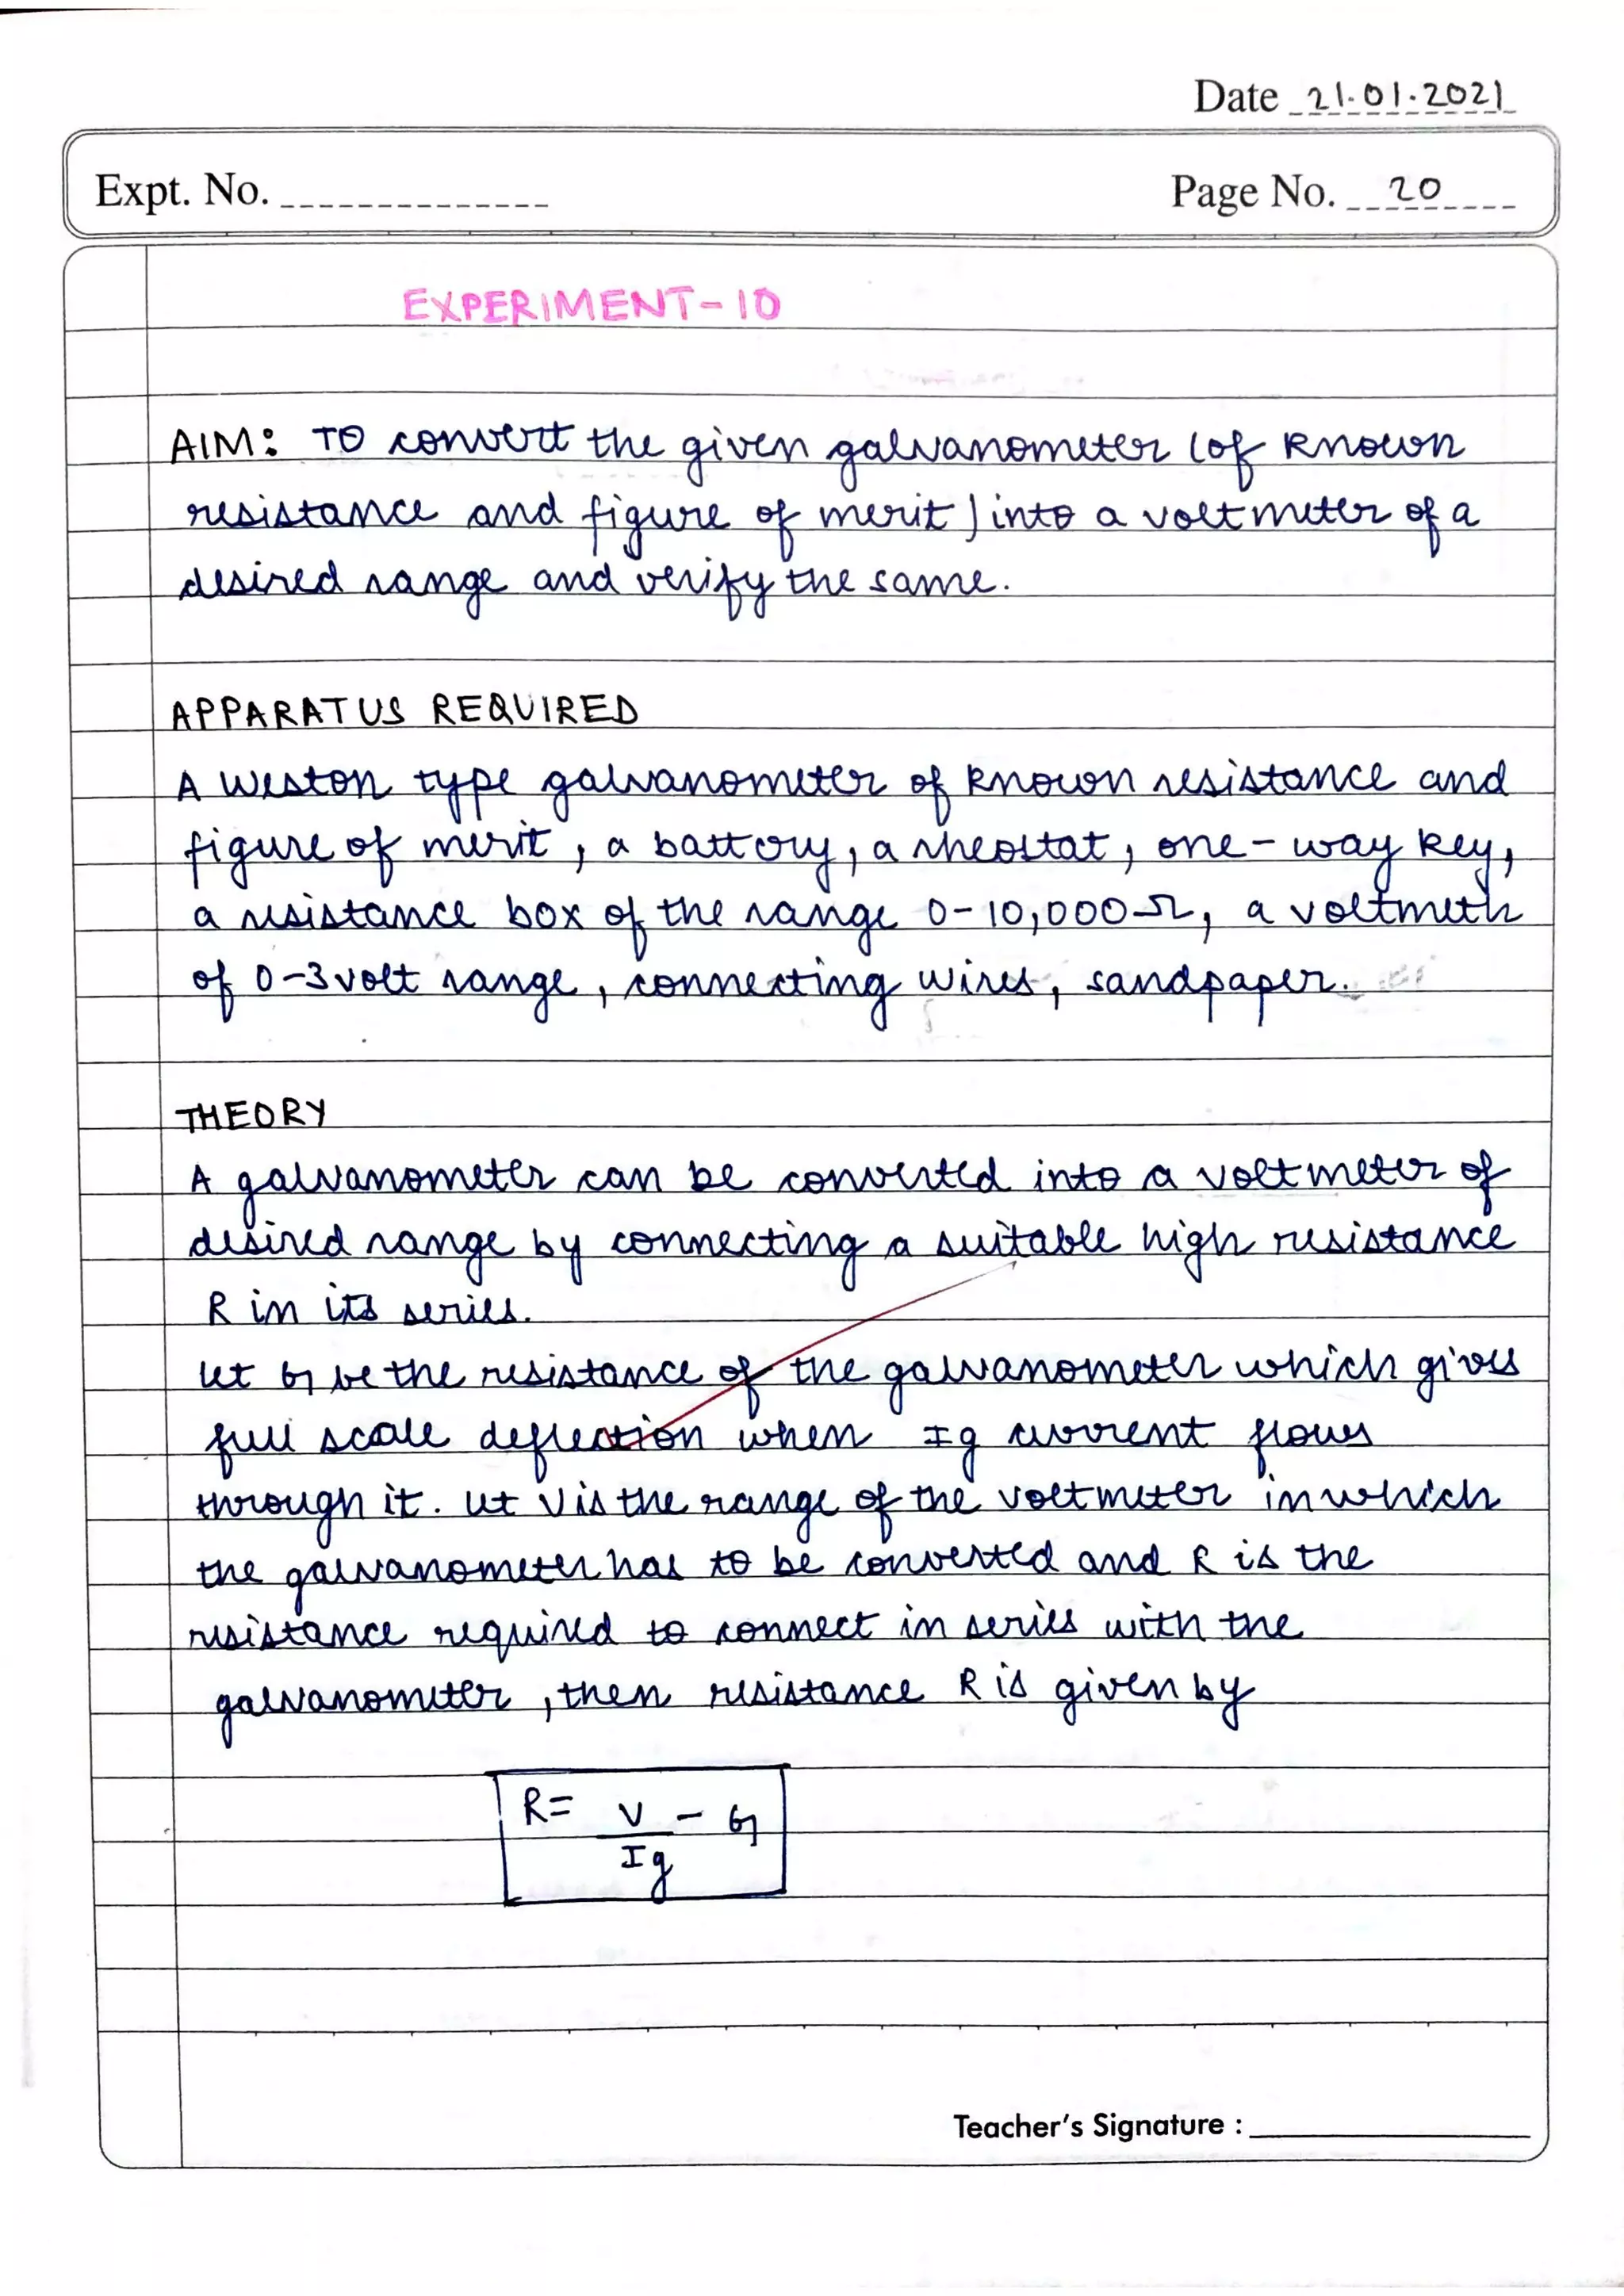 Date 21.01.2021
Expt. No.
Page No. 20
EXPERIMENT-10
AIM: To convert the given galvanometer (of known
resistance and figure of merit) into a voltmeter of a
desired range and verify the same.
APPARATUS REQUIRED
A weston type galvanometer of known resistance and
figure of merit, a battery, a rheostat, one-way key,
a resistance box of the range 0-10,000Ω, a voltmeter
of 0-3volt range, connecting wires, sandpaper.
THEORY
A galvanometer can be converted into a voltmeter of
desired range by connecting a suitable high resistance
R in its series.
let G be the resistance of the galvanometer which gives
full scale deflection when Ig current flows
through it. let V is the range of the voltmeter in which
the galvanometer has to be converted and R is the
resistance required to connect in series with the
galvanometer, then resistance R is given by
R = V/Ig - G
Teacher's Signature :